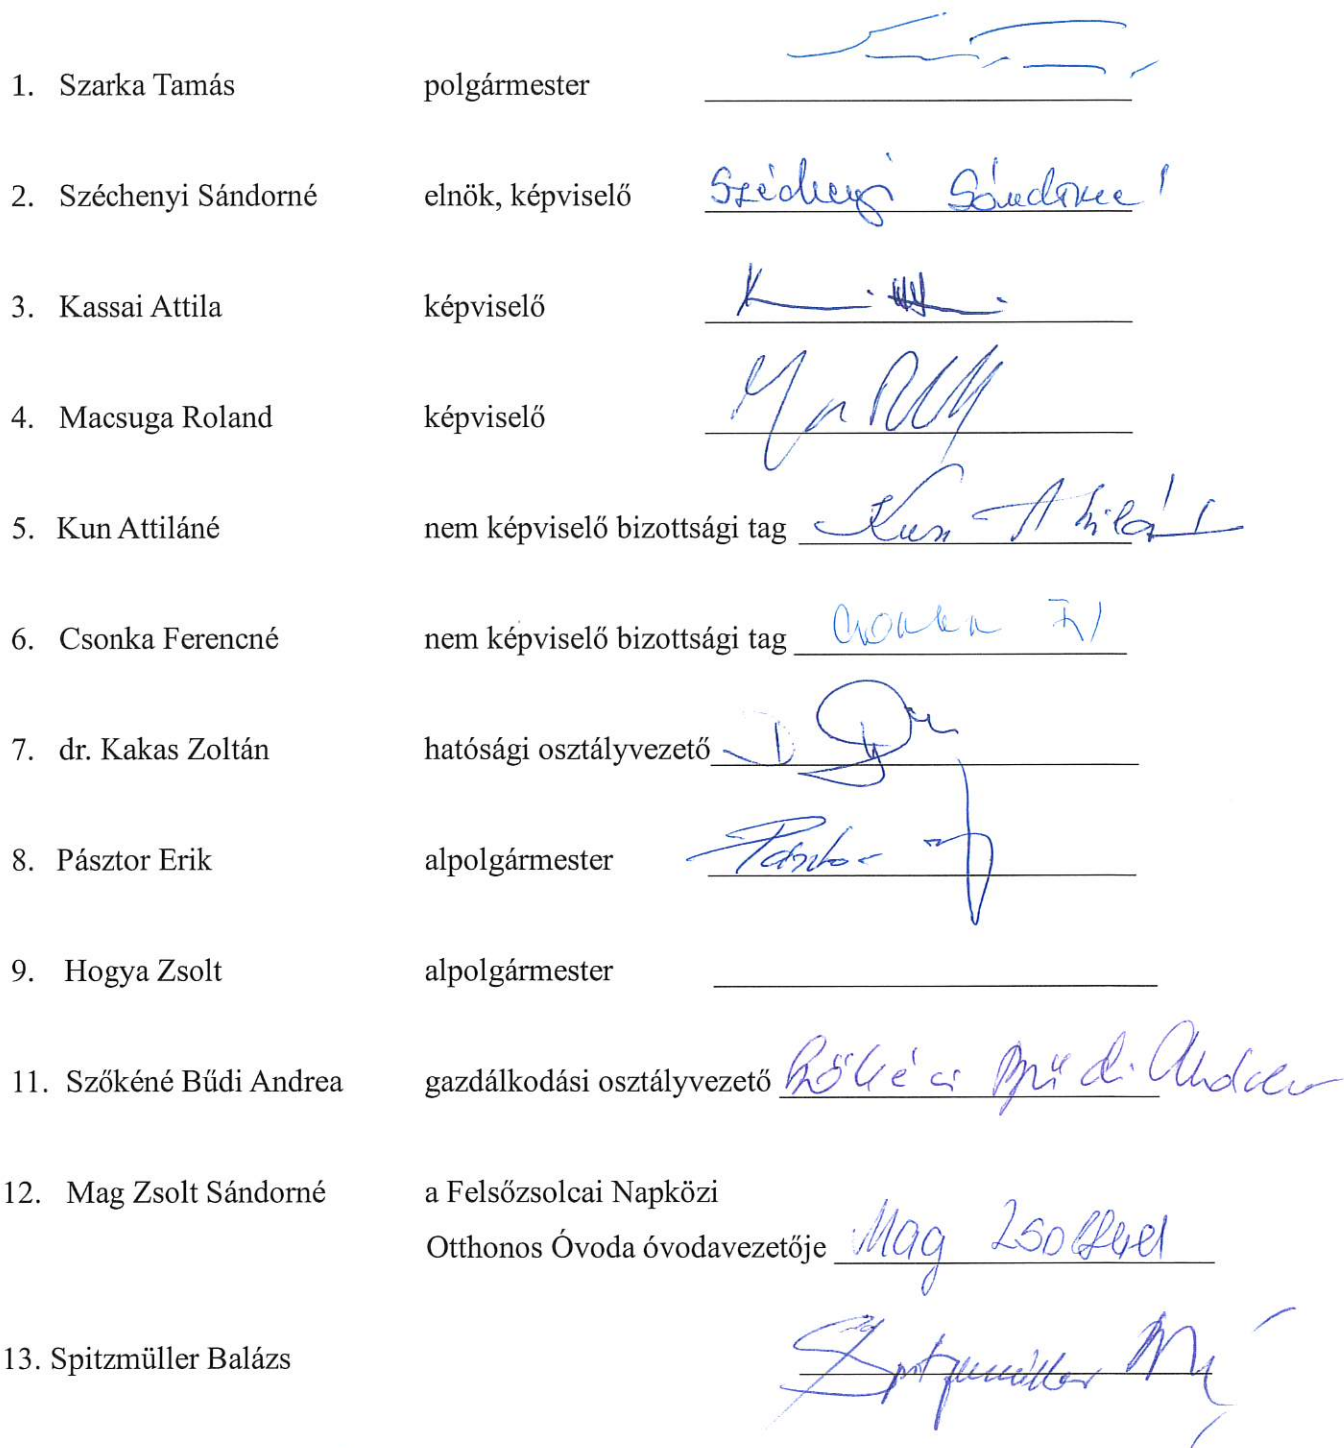 1. Szarka Tamás polgármester
2. Széchenyi Sándorné elnök, képviselő Széchenyi Sándorné
3. Kassai Attila képviselő
4. Macsuga Roland képviselő
5. Kun Attiláné nem képviselő bizottsági tag Kun Attiláné
6. Csonka Ferencné nem képviselő bizottsági tag Csonka
7. dr. Kakas Zoltán hatósági osztályvezető
8. Pásztor Erik alpolgármester Pásztor
9. Hogya Zsolt alpolgármester
11. Szőkéné Bűdi Andrea gazdálkodási osztályvezető Szőkéné Bűdi Andrea
12. Mag Zsolt Sándorné a Felsőzsolcai Napközi
Otthonos Óvoda óvodavezetője Mag
13. Spitzmüller Balázs Spitzmüller